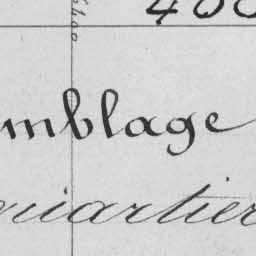 400
mblage
quartier